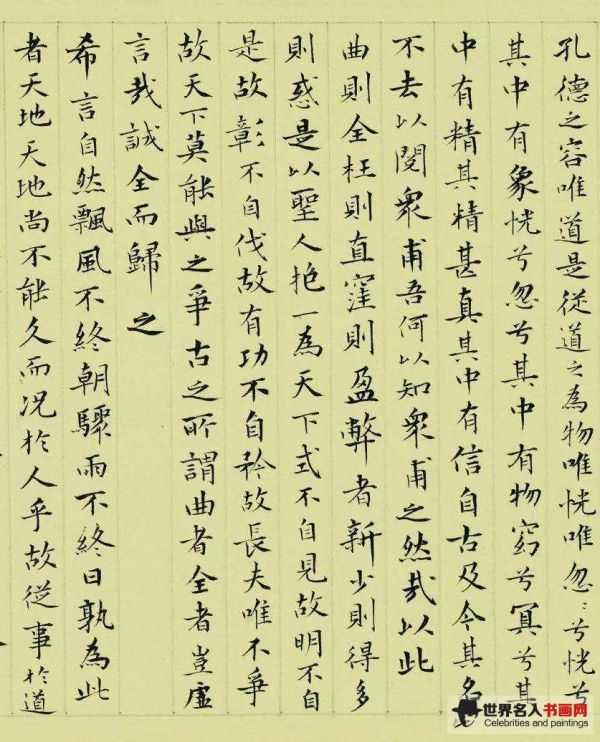 孔德之容唯道是從道之為物唯恍唯忽〻兮恍兮
其中有象恍兮忽兮其中有物窈兮冥兮其
中有精其精甚真其中有信自古及今其名
不去以閱衆甫吾何以知衆甫之然哉以此
曲則全枉則直窪則盈弊者新少則得多
則惑是以聖人抱一為天下式不自見故明不自
是故彰不自伐故有功不自矜故長夫唯不爭
故天下莫能與之爭古之所謂曲者全者豈虛
言哉誠全而歸之
希言自然飄風不終朝驟雨不終日孰為此
者天地天地尚不能久而況於人乎故從事於道
世界名人书画网
Celebrities and paintings